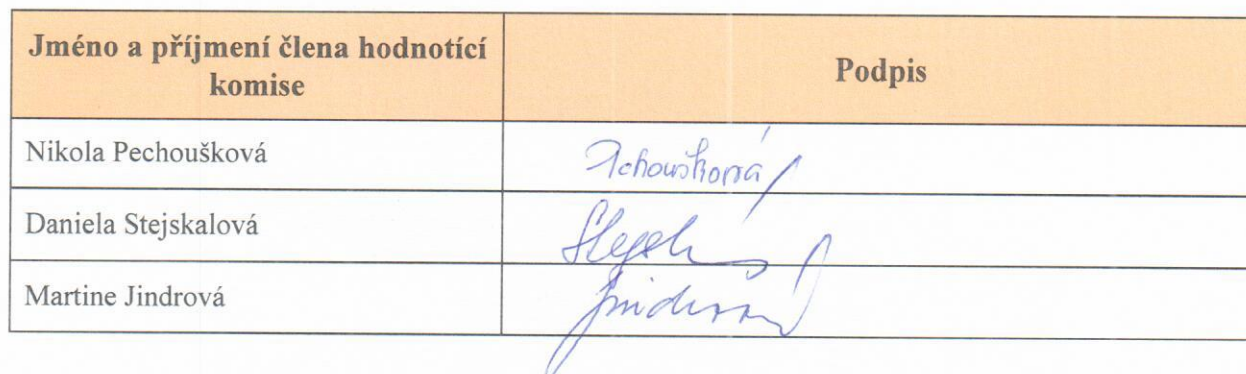 Jméno a příjmení člena hodnotící
komise
Podpis
Nikola Pechoušková
Pechoušková
Daniela Stejskalová
Martine Jindrová
Jindrová